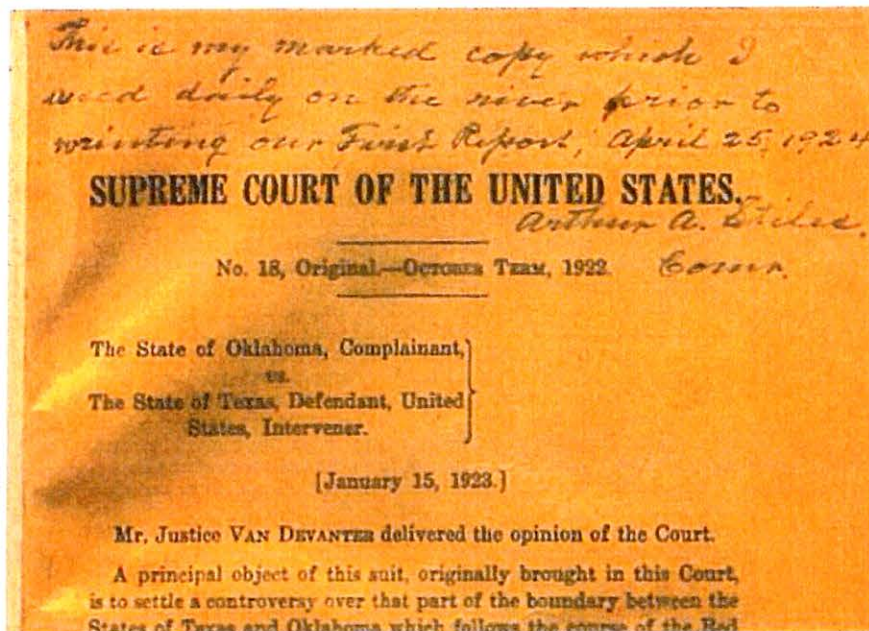 This is my marked copy which I
used daily on the river prior to
writing our First Report, April 25, 1924
SUPREME COURT OF THE UNITED STATES.
Arthur A. Stiles,
Comr.
No. 18, Original.—OCTOBER TERM, 1922.
The State of Oklahoma, Complainant,
vs.
The State of Texas, Defendant, United
States, Intervener.
[January 15, 1923.]
Mr. Justice VAN DEVANTER delivered the opinion of the Court.
A principal object of this suit, originally brought in this Court,
is to settle a controversy over that part of the boundary between the
States of Texas and Oklahoma which follows the course of the Red